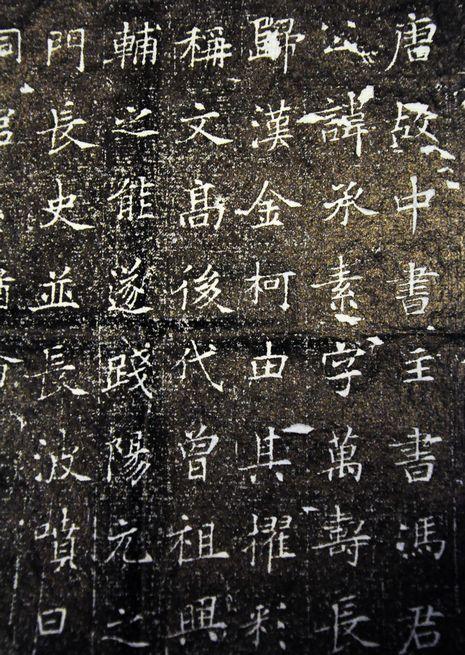 唐故中書主書馮君
公諱承素字萬壽長
歸漢金柯由其擢彩
稱文高後代曾祖興
輔之能遂踐陽元之
門長史並長波噴日